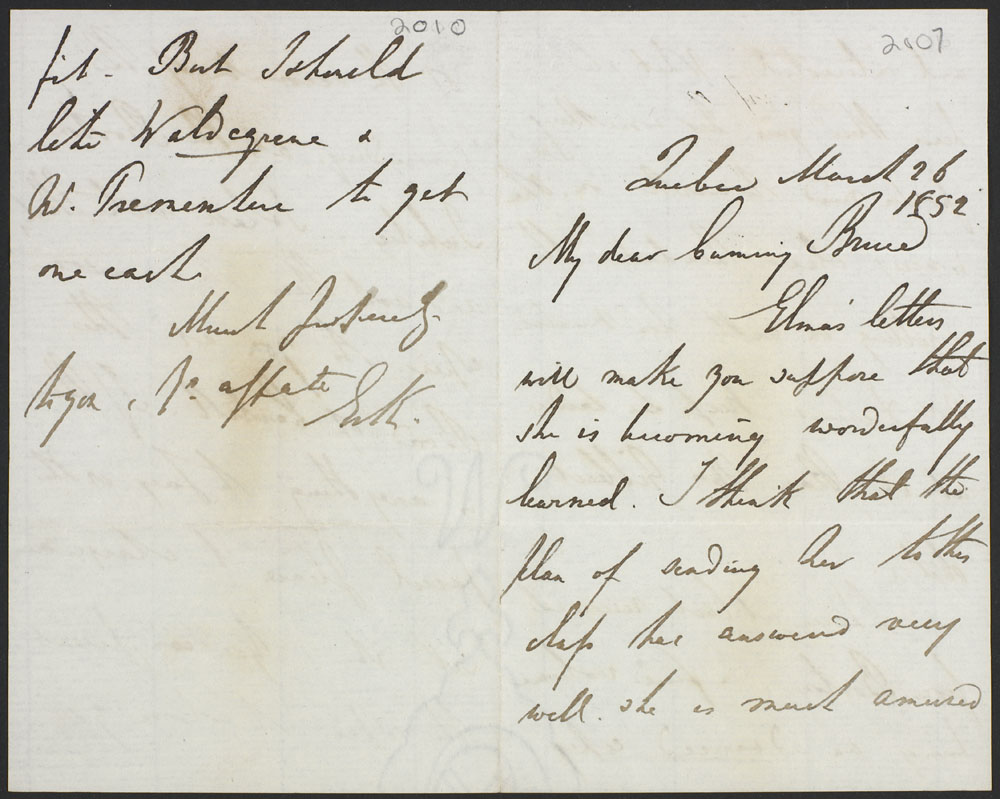 2010
fit - But I should
like Waldegrave &
W. Tremenhere to get
one each
Much
to you, Yr. affate E&K.
2007
Quebec March 26
1852
My dear Cumming Bruce
Elma's letters
will make you suppose that
she is becoming wonderfully
learned. I think that the
plan of sending her to this
class has answered very
well. She is much amused